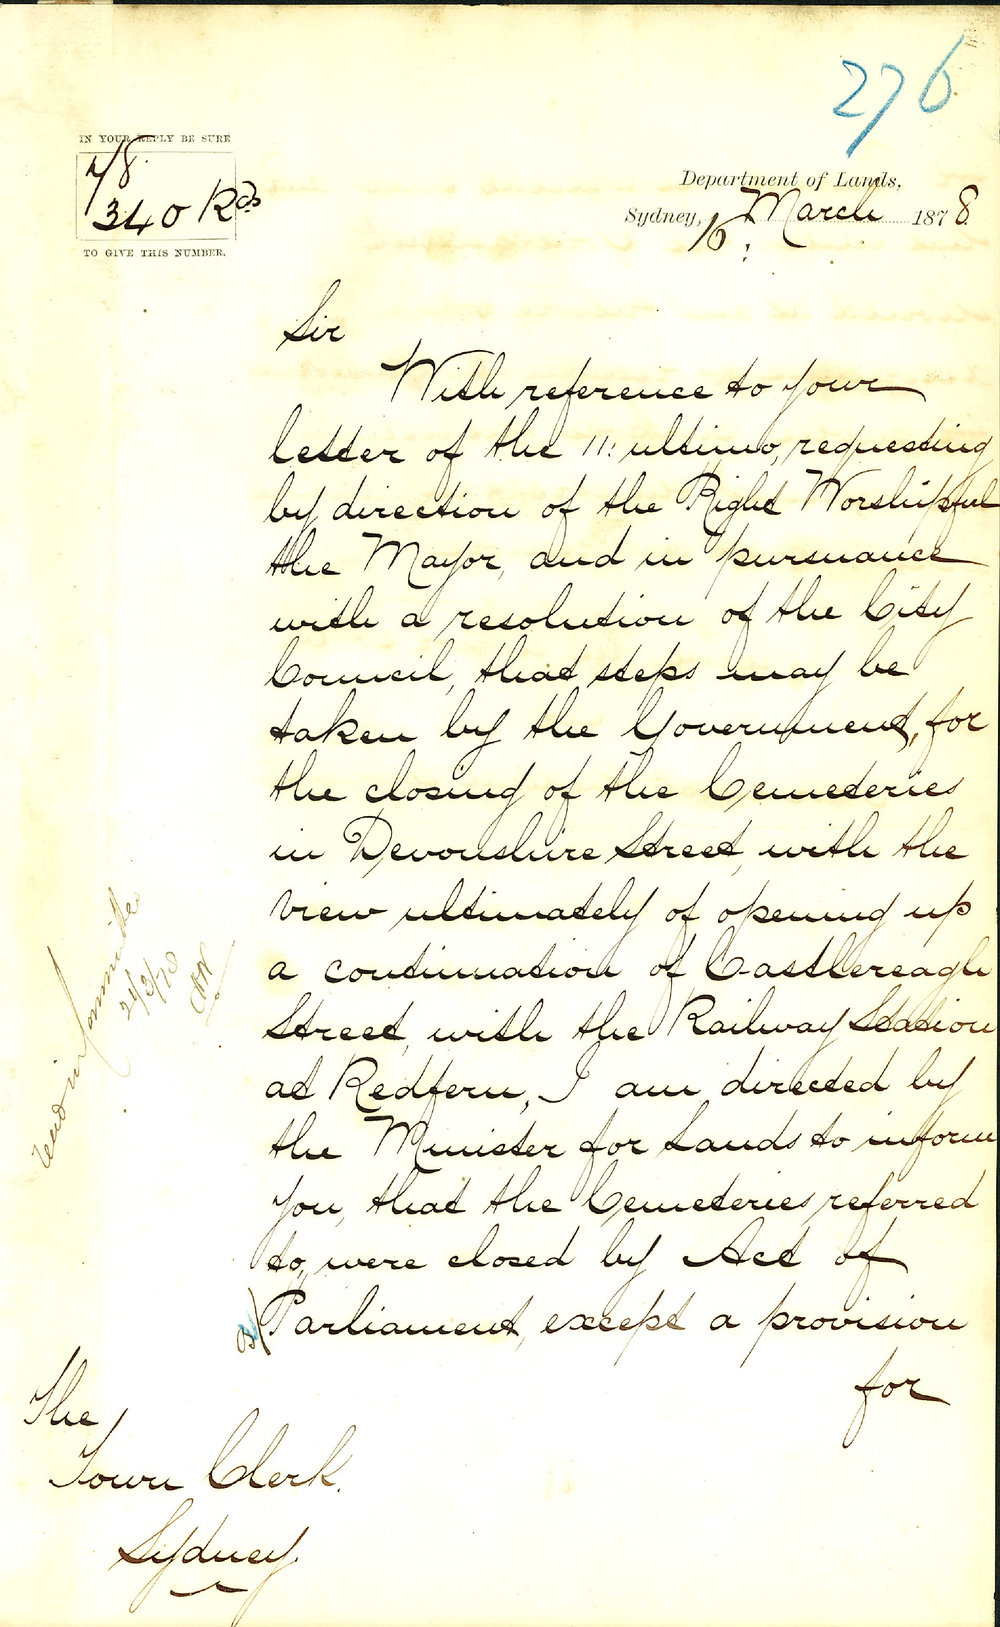 276
IN YOUR REPLY BE SURE
78
340 Rds
TO GIVE THIS NUMBER.
Department of Lands,
Sydney, 16 March 1878.
Sir
With reference to your
letter of the 11: ultimo, requesting
by direction of the Right Worshipful
the Mayor, and in pursuance
with a resolution of the City
Council, that steps may be
taken by the Government, for
the closing of the Cemeteries
in Devonshire Street, with the
view ultimately of opening up
a continuation of Castlereagh
Street, with the Railway Station
at Redfern, I am directed by
the Minister for Lands to inform
you, that the Cemeteries referred
to, were closed by Act of
Parliament, except a provision
for
The
Town Clerk.
Sydney.